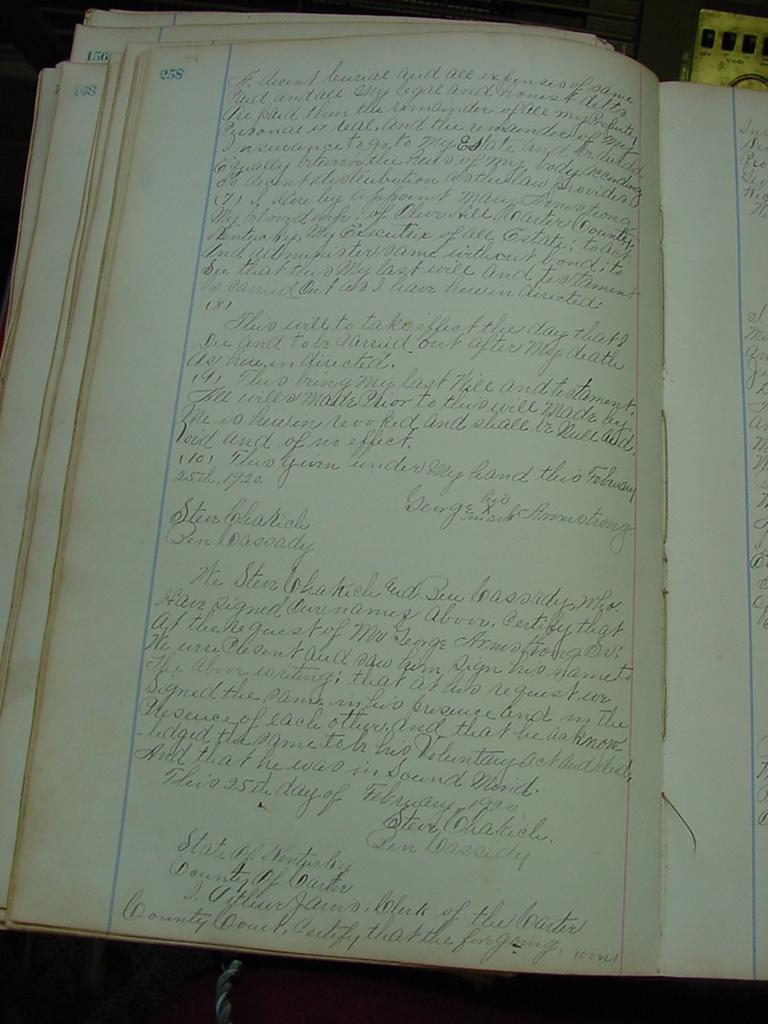 156
168
258
A decent burial and all expenses of same
Paid and all my legal and honest debts
are paid then the remainder of all my Property
Personal or real, and the remainder of my
Insurance to go to my Estate and be divided
Equally between the heirs of my body according
to decent distribution as the law Provides.
(7) I, Here by appoint Mary Armstrong
My beloved wife, of Olive Hill, Carter County,
Kentucky, My Executrix of all Estate; to act
and administer same without bond; to
See that this My last will and testament
is Carried Out as I have herein directed:
(8)
This will, to take effect the day that I
Die and to be Carried out after My death
as here in directed.
(9) This being My last Will and testament.
All wills made Prior to this will Made by
Me is herein revoked and shall be Null and
void and of no effect.
(10) This given under My hand this February
25th, 1920.
George his X mark Armstrong
Steve Chakich
Ben Cassady.
We Steve Chakich and Ben Cassady, who
Have signed Our names above, Certify that
at the request of Mr George Armstrong Sr;
We were Present and saw him sign his name to
The above writing; that at his request we
Signed the same in his presence and in the
Presence of each other, and that he acknow
-ledged the same to be his Voluntary act and deed,
And that he was in Sound Mind.
This 25th day of February, 1920
Steve Chakich.
Ben Cassidy
State Of Kentucky
County Of Carter
I, Arthur Jarvis, Clerk of the Carter
County Court, Certify that the foregoing, (over)